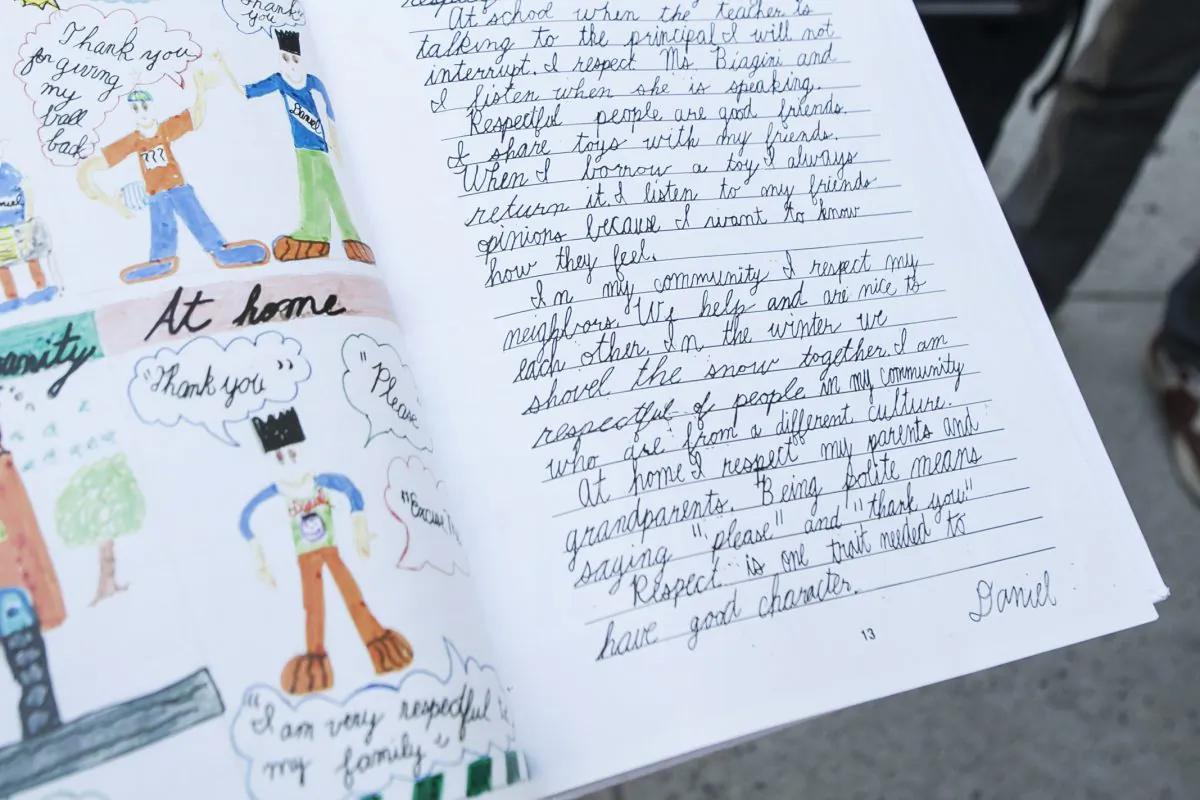 Thank you
for giving
my
ball
back
Thank
you
Daniel
???
At home
"Thank you"
"Please
"Excuse
"I am very respedful
my family"
At school when the teacher is
talking to the principal I will not
interrupt. I respect Ms. Biagini and
I listen when she is speaking.
Respectful people are good friends.
I share toys with my friends.
When I borrow a toy I always
return it. I listen to my friends
opinions because I want to know
how they feel.
In my community I respect my
neighbors. We help and are nice to
each other. In the winter we
shovel the snow together. I am
respectful of people in my community
who are from a different culture.
At home I respect my parents and
grandparents. Being polite means
saying "please" and "thank you"
Respect is one trait needed to
have good character.
Daniel
13